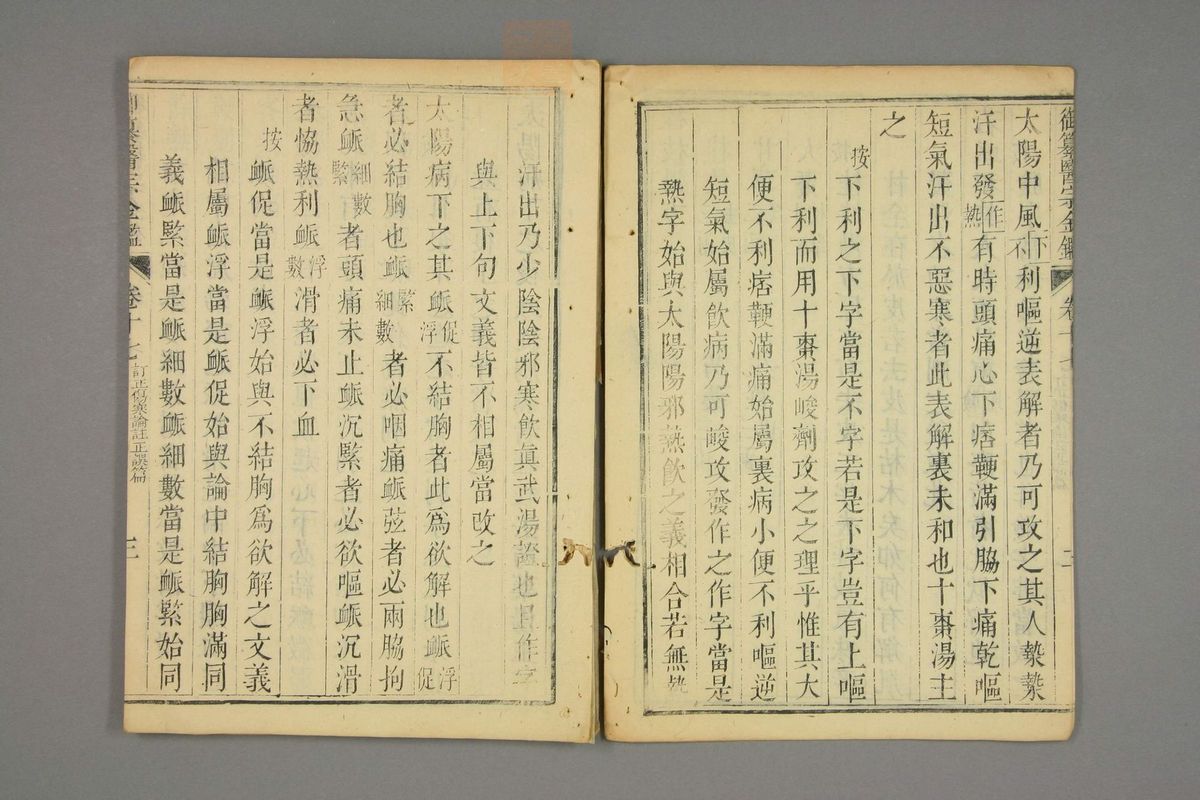 御纂醫宗金鑑
太陽中風下不利嘔逆表解者乃可攻之其人漐漐
汗出發作熱有時頭痛心下痞鞕滿引脇下痛乾嘔
短氣汗出不惡寒者此表解裏未和也十棗湯主
之
按
下利之下字當是不字若是下字豈有上嘔
下利而用十棗湯峻劑攻之之理乎惟其大
便不利痞鞕滿痛始屬裏病小便不利嘔逆
短氣始屬飲病乃可峻攻發作之作字當是
熱字始與太陽陽邪熱飲之義相合若無熱
汗出乃少陰陰邪寒飲眞武湯證也且作字
與上下句文義皆不相屬當改之
太陽病下之其脈促浮不結胸者此爲欲解也脈浮促
者必結胸也脈緊細數者必咽痛脈弦者必兩脇拘
急脈細數緊者頭痛未止脈沉緊者必欲嘔脈沉滑
者恊熱利脈浮數滑者必下血
按
脈促當是脈浮始與不結胸爲欲解之文義
相屬脈浮當是脈促始與論中結胸胸滿同
義脈緊當是脈細數脈細數當是脈緊始同
御纂醫宗金鑑 卷十七 訂正傷寒論註正誤篇 三